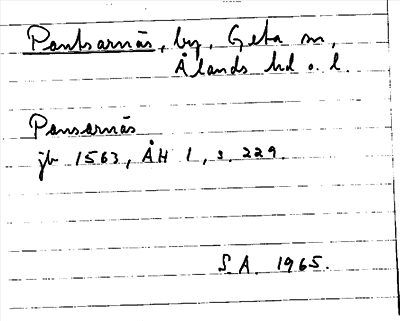 Pantsarnäs, by, Geta sn,
Ålands hd o. l.
Pansarnäs
jb 1563, ÅH 1, s. 229.
S.A. 1965.